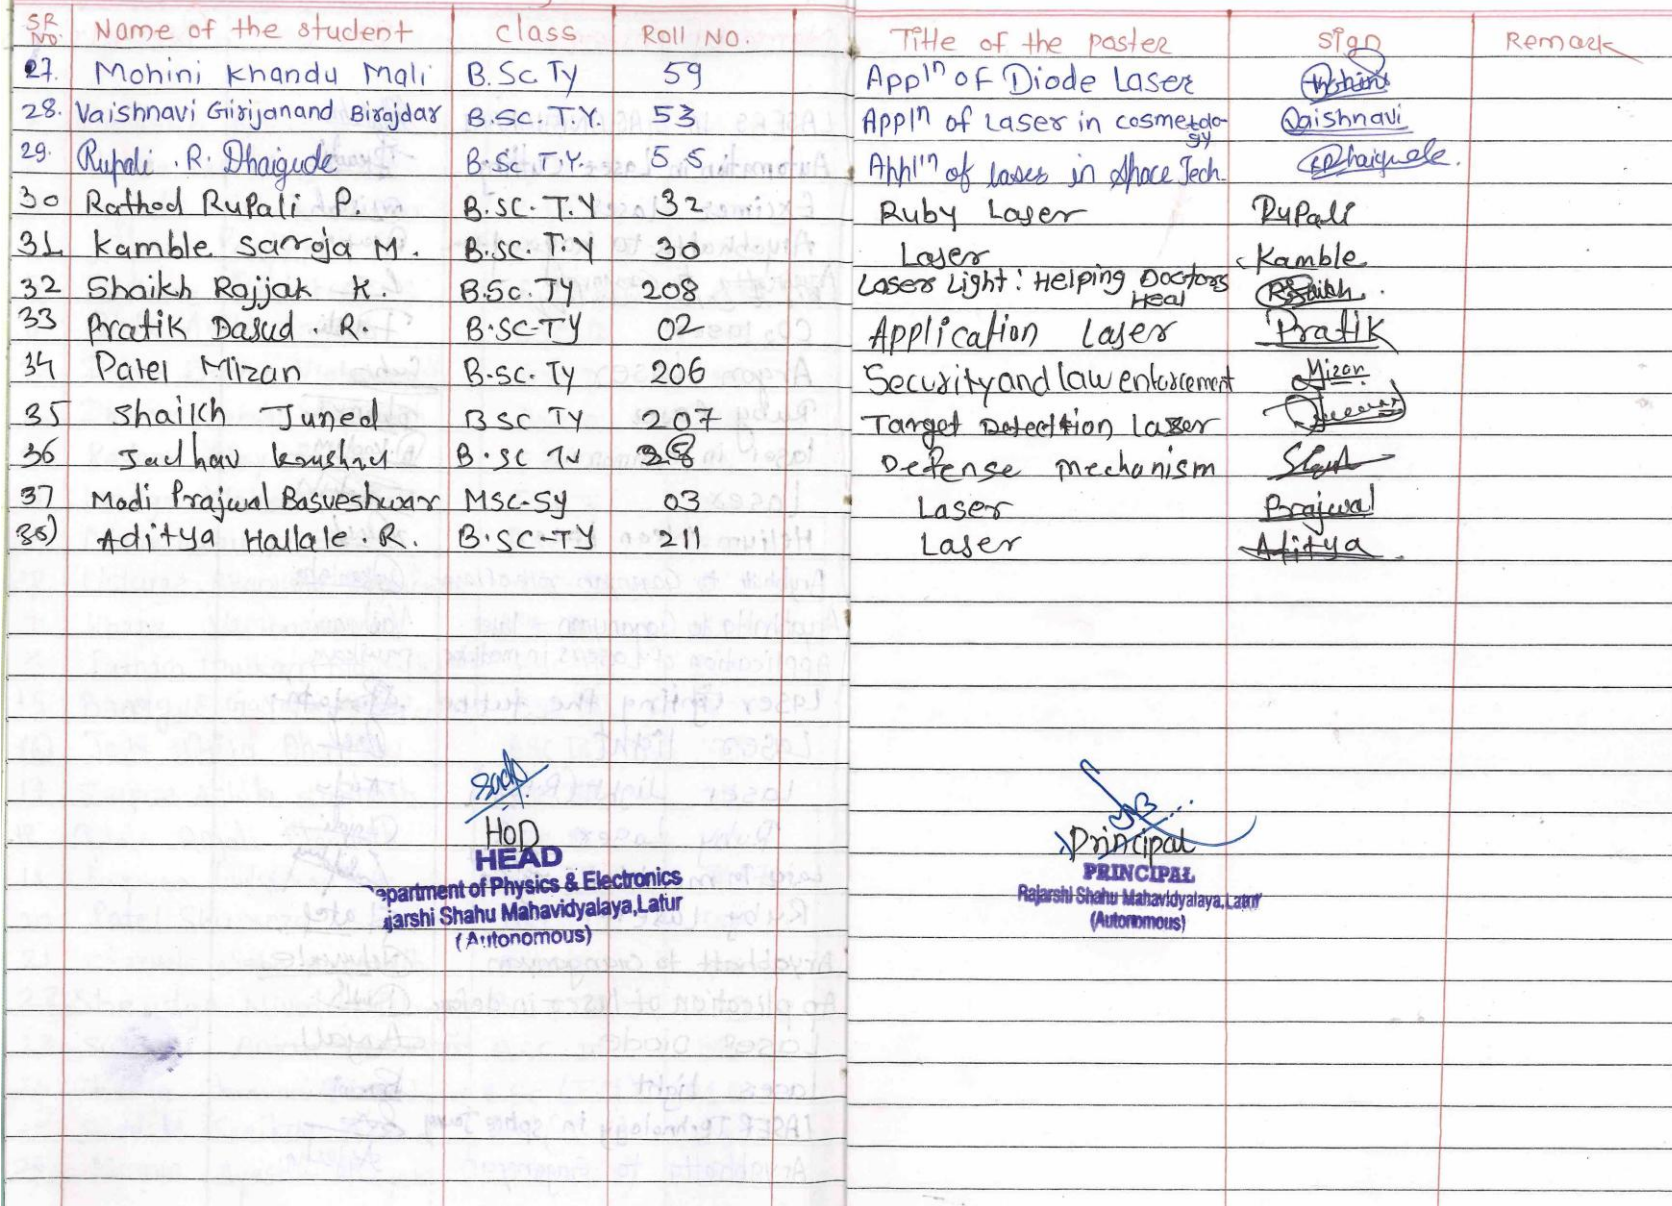 SR NO. Name of the student class Roll NO. Title of the poster Sign Remark
27. Mohini Khandu Mali B.Sc. Ty 59 Appln of Diode Laser Mohini
28. Vaishnavi Girijanand Birajdar B.SC. T.Y. 53 Appln of Laser in cosmetolo-
gy Vaishnavi
29. Rupali . R. Dhaigude B.Sc. T.Y. 55 Appl'n of laser in space Tech. Dhaigude.
30 Rathod Rupali P. B.SC. T.Y 32 Ruby Laser Rupali
31 Kamble Saroja M. B.SC. T.Y 30 Laser Kamble
32 Shaikh Rajjak K. B.Sc. TY 208 Laser Light : Helping Doctors
Heal RShaikh
33 Pratik Dasud . R. B.SC-TY 02 Application Laser Pratik
34 Patel Mizan B.sc. Ty 206 Security and law enforcement Mizan
35 Shaikh Juned BSC TY 207 Target Detecition Laser
36 Jadhav Krushna B.SC Ty 28 Defense mechanism
37 Modi Prajwal Basveshwar MSC-Sy 03 Laser Prajwal
38) Aditya Hallale . R. B.SC-TY 211 Laser Aditya
HOD
HEAD
epartment of Physics & Electronics
jarshi Shahu Mahavidyalaya, Latur
(Autonomous)
Principal
PRINCIPAL
Rajarshi Shahu Mahavidyalaya, Latur
(Autonomous)